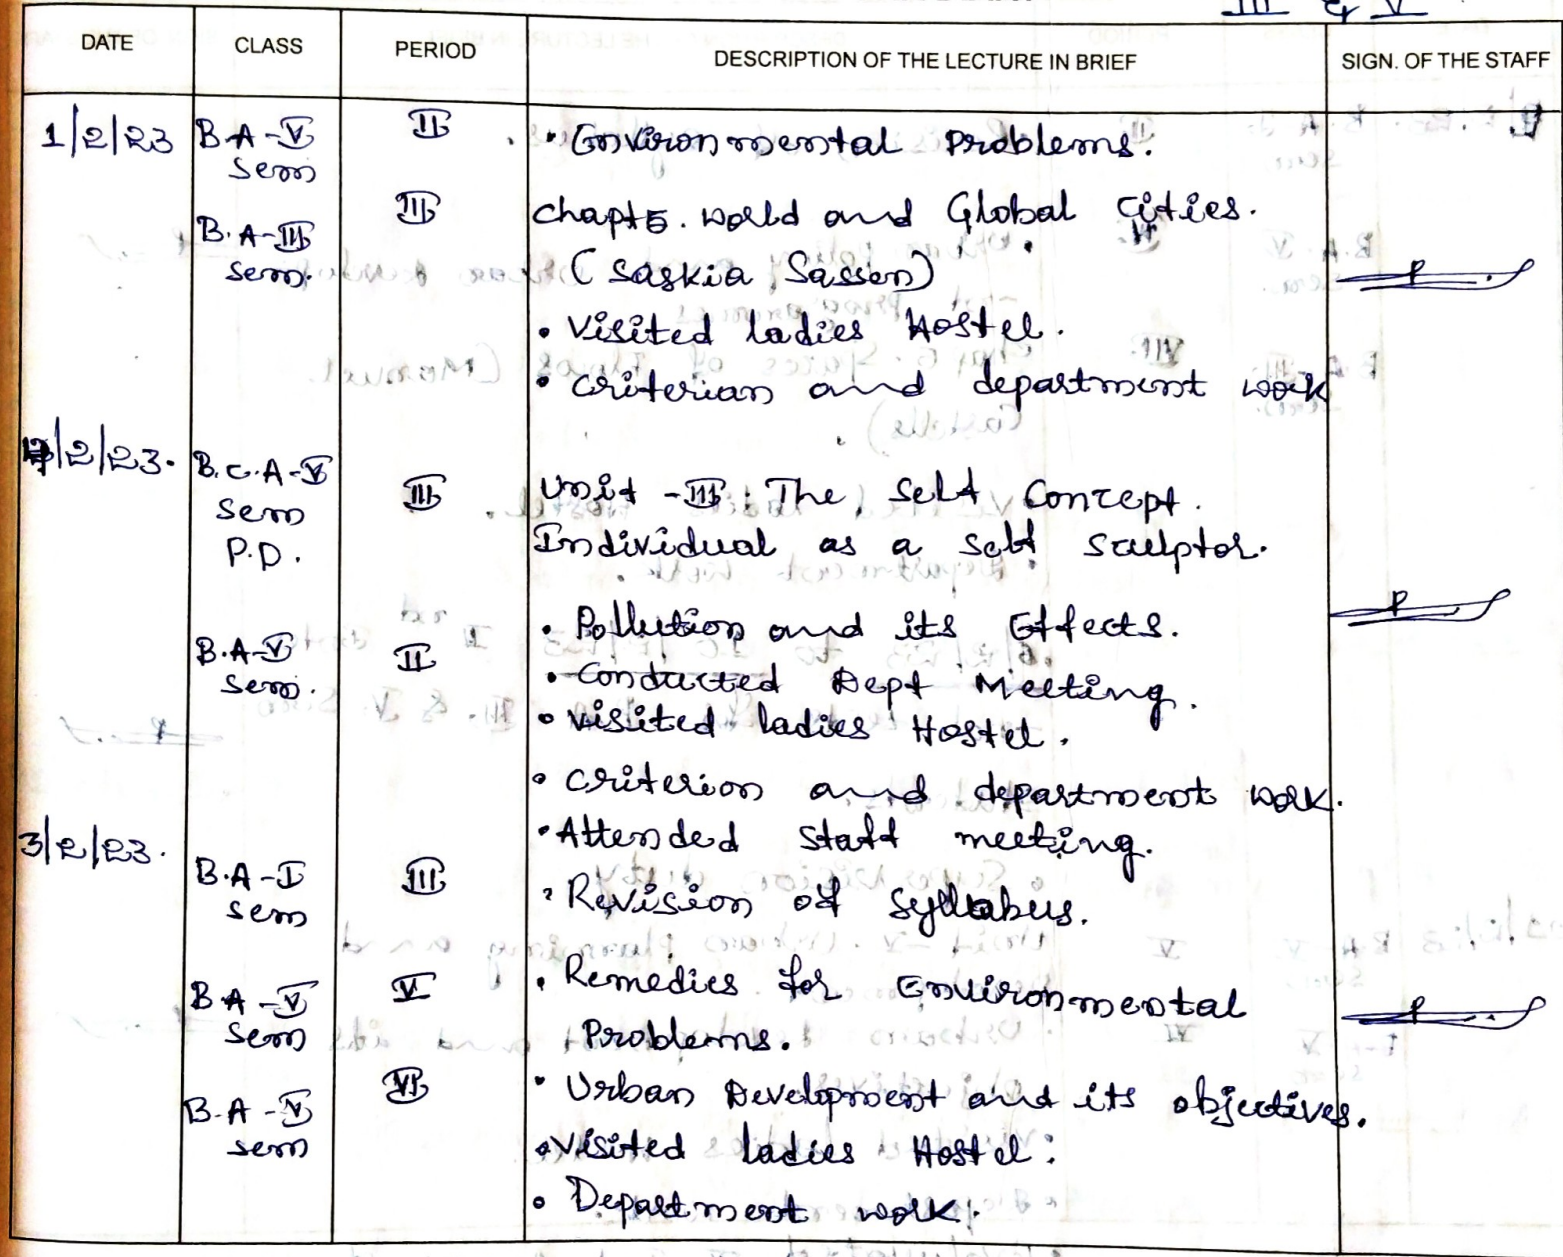 III & V
DATE CLASS PERIOD DESCRIPTION OF THE LECTURE IN BRIEF SIGN. OF THE STAFF
1/2/23 B.A-V II • Environmental Problems.
Sem
B.A-III III Chapt 5. World and Global Cities.
Sem. (Saskia Sassen)
• Visited ladies Hostel.
• criterian and department work
/2/23. B.C.A-V III Unit-III: The Self Concept.
Sem Individual as a self sculptor.
P.D.
• Pollution and its Effects.
B.A-V II
Sem. • Conducted Dept Meeting.
• visited ladies Hostel.
• criterion and department work.
3/2/23. • Attended staff meeting.
B.A-I III • Revision of Syllabus.
Sem
B A-V V • Remedies for Environmental
Sem Problems.
B.A-V VI • Urban Development and its objectives.
Sem • Visited ladies Hostel.
• Department work.